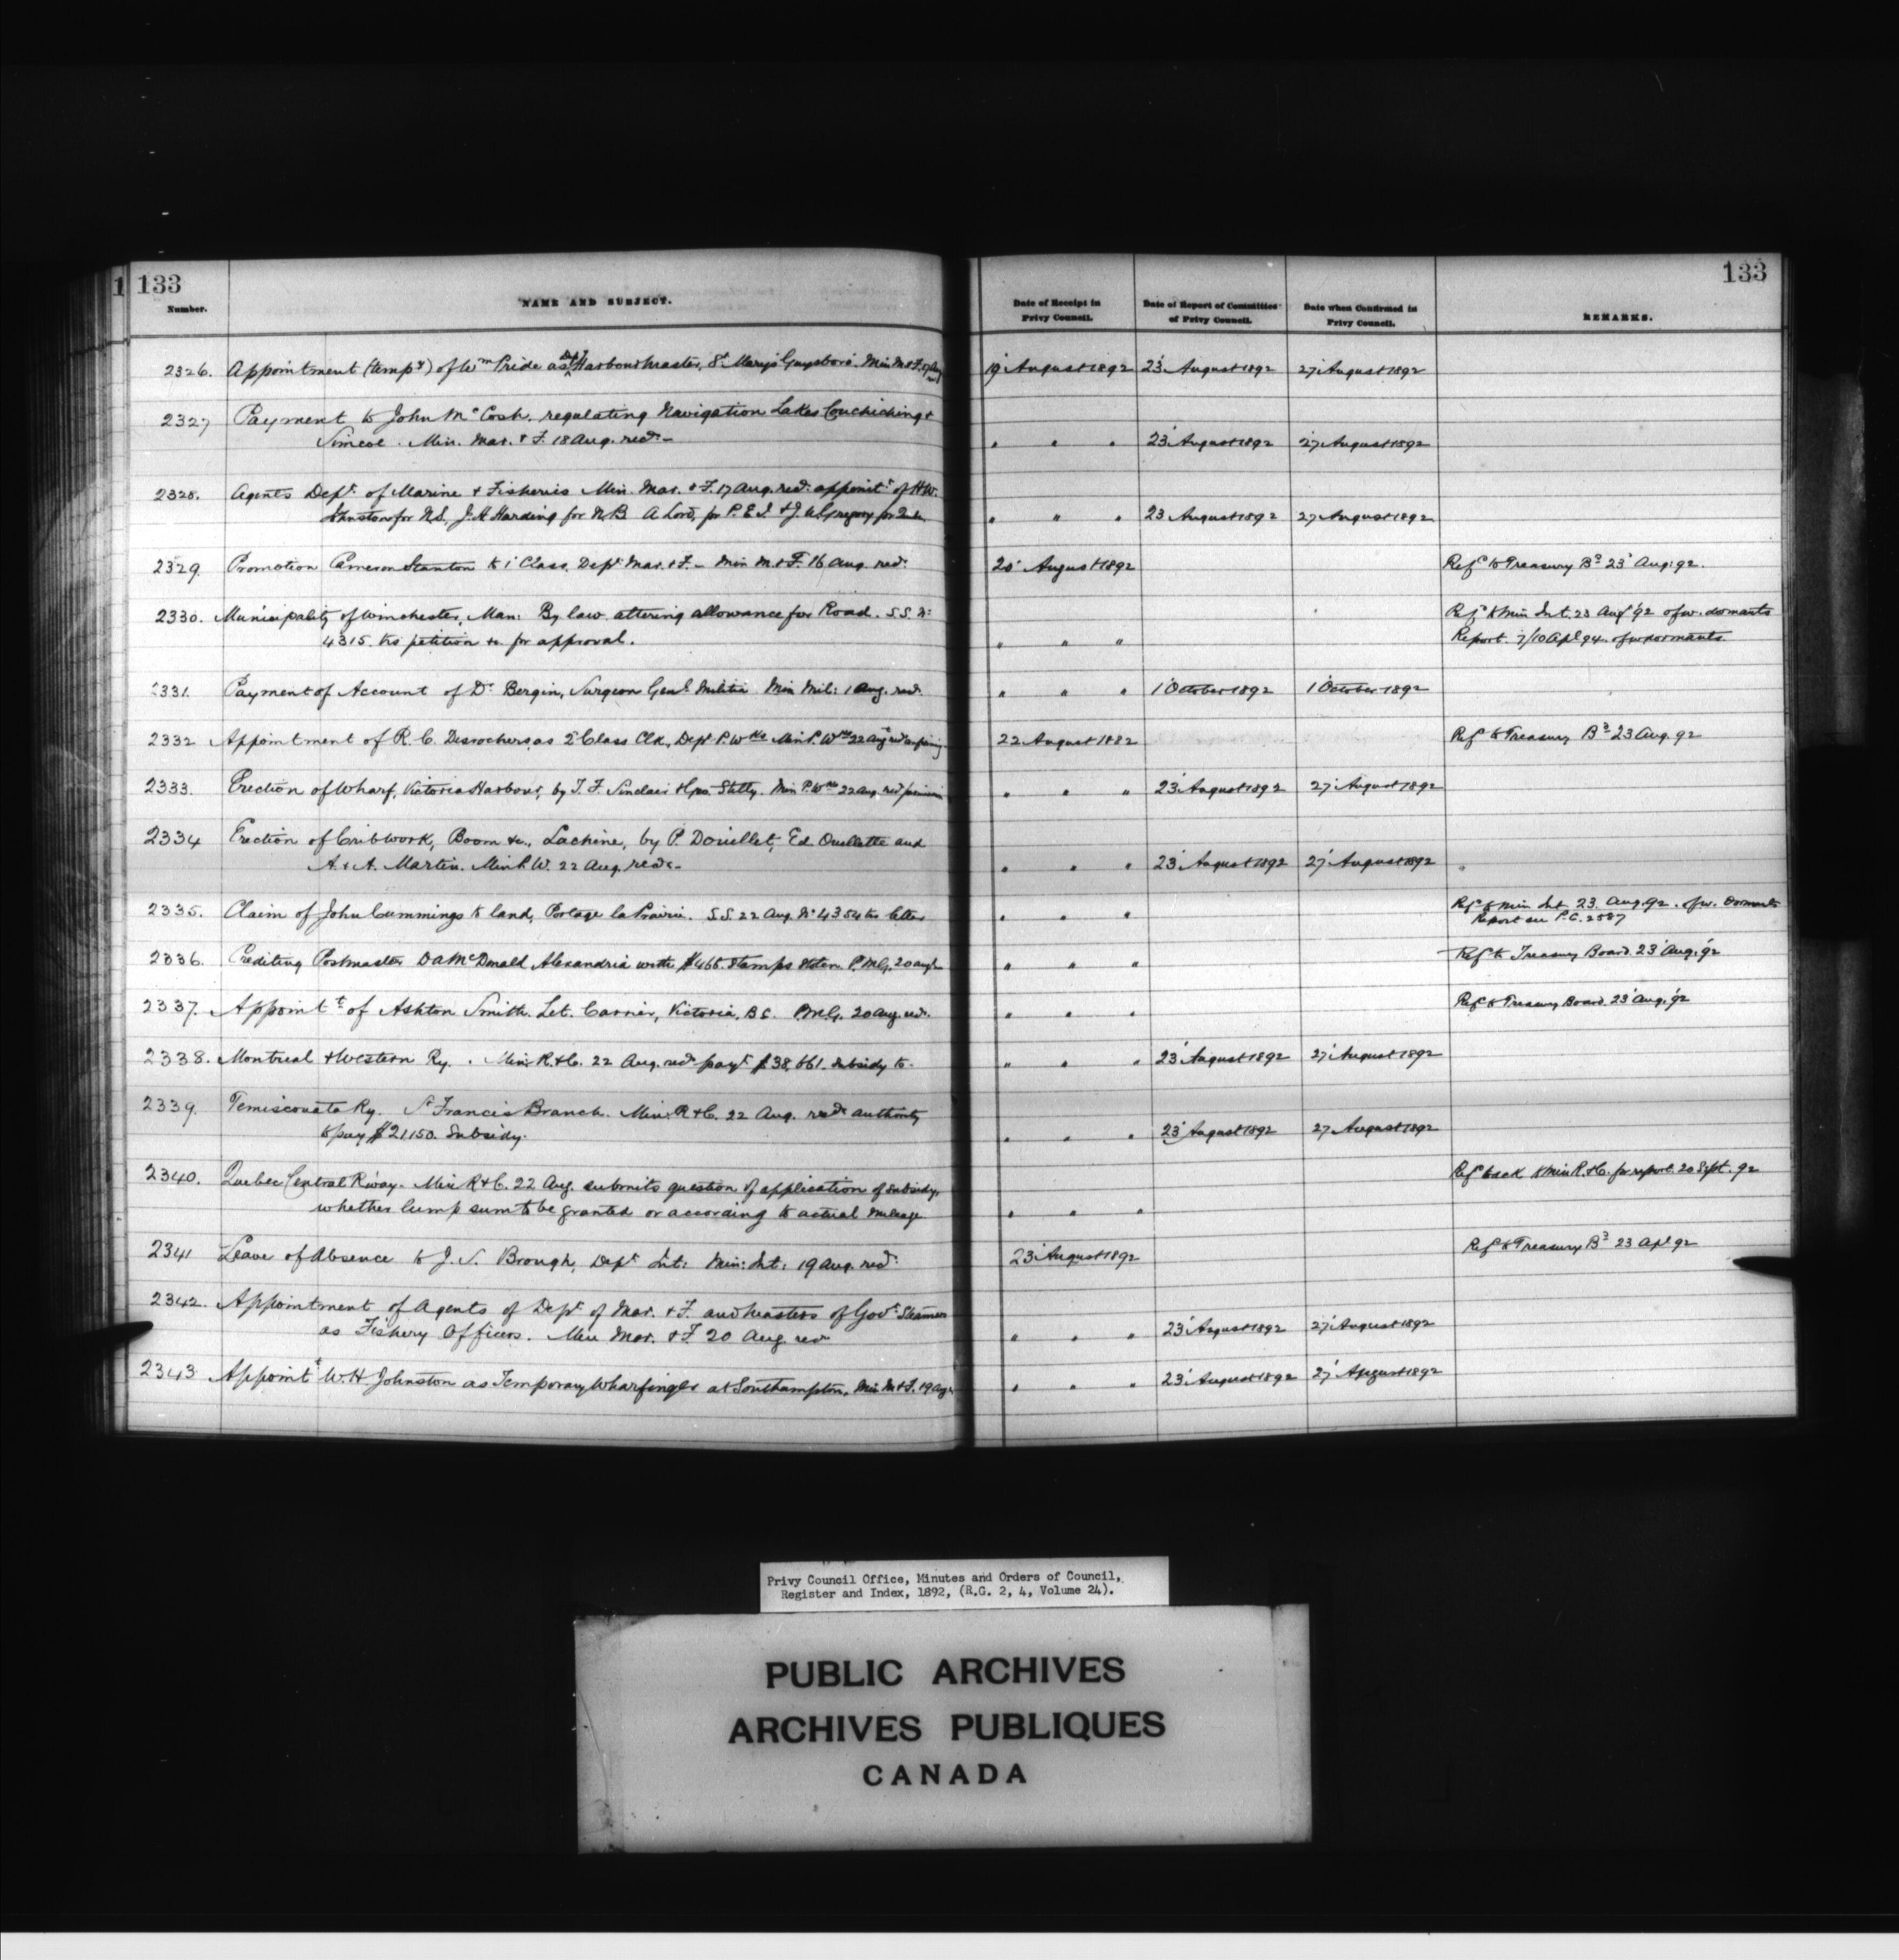 1 133
133
Number.
NAME AND SUBJECT.
Date of Receipt in Privy Council.
Date of Report of Committee of Privy Council.
Date when Confirmed in Privy Council.
REMARKS.
2326. Appointment (temp y) of Wm Pride as Dep y Harbourmaster, St Mary's Guysboro. Min M & F. 17 Aug 19 August 1892 23 August 1892 27 August 1892
2327 Payment to John McCosh. regulating Navigation Lakes Couchiching &
Simcoe. Min. Mar. & F. 18 Aug. recd. – " " " 23 August 1892 27 August 1892
2328. Agents Dept. of Marine & Fisheries Min. Mar. & F. 17 Aug. recd. appoint t of H W.
Johnston for N.S. J. H Harding for N B A Lord, for P. E. I. & J. U. Gregory for Quebec " " " 23 August 1892 27 August 1892
2329. Promotion Cameron Stanton to 1 Class, Dept. Mar. & F. – Min M & F. 16 Aug recd. 20 August 1892 Refd to Treasury Bd 23 Aug. 92.
2330. Municipality of Winchester, Man: By law altering allowance for Road. S.S. No Refd to Min Int. 23 Aug '92 of w. dormants
4315. tts petition &c for approval. " " " Report. 7/10 Apl 94. of w dormants.
2331. Payment of Account of Dr Bergin, Surgeon Genl Militia Min Mil: 1 Aug. recd. " " " 1 October 1892 1 October 1892
2332 Appointment of R. C. Desrochers as 2 Class Clk., Dept P. Wks Min P. Wks 22 Aug recd 22 August 1882 Refd to Treasury Bd 23 Aug. 92
2333. Erection of Wharf, Victoria Harbour, by T. F. Sinclair & Geo. Min P. Wks 22 Aug recd permission " " " 23 August 1892 27 August 1892
2334 Erection of Cribwork, Boom &c., Lachine, by P. Douillet, Ed. Ouellette and
A. & A. Martin. Min P. W. 22 Aug. recd. – " " " 23 August 1892 27 August 1892 "
2335. Claim of John Cummings to land, Portage la Prairie. S.S. 22 Aug. No 4354 tts letter " " " Refd to Min Int 23 Aug. 92. of w. Dormants
Report see P.C. 2587
2336. Crediting Postmaster D A McDonald Alexandria with $465. Stamps stolen P. M G. 20 aug " " " Refd to Treasury Board. 23 Aug. '92
2337. Appoint t of Ashton Smith. Let. Carrier, Victoria, B C. P M G. 20 Aug. recd. " " " Refd to Treasury Board. 23 Aug. '92
2338. Montreal & Western Ry. . Min: R. & C. 22 Aug. recd. pay t $38,661. Subsidy to. " " " 23 August 1892 27 August 1892
2339. Temiscouata Ry. St Francis Branch. Min: R & C. 22 Aug. recd. authority
to pay $21150. Subsidy. " " " 23 August 1892 27 August 1892
2340. Quebec Central R'way. Min R & C. 22 Aug. submits question of application of subsidy, Refd back to Min R. & C. for report. 20 Sept. 92
whether lump sum to be granted or according to actual mileage " " "
2341 Leave of Absence to J. S. Brough, Dept Int: Min: Int: 19 Aug. recd. 23 August 1892 Refd to Treasury Bd 23 Apl 92
2342. Appointment of Agents of Dept of Mar. & F. and Masters of Govt. Steamers
as Fishery Officers. Min Mar. & F 20 Aug. recd " " " 23 August 1892 27 August 1892
2343 Appoint t W. H Johnston as Temporary Wharfinger at Southampton, Min M & F. 19 Aug. " " " 23 August 1892 27 August 1892
Privy Council Office, Minutes and Orders of Council,
Register and Index, 1892, (R.G. 2, 4, Volume 24).
PUBLIC ARCHIVES
ARCHIVES PUBLIQUES
CANADA